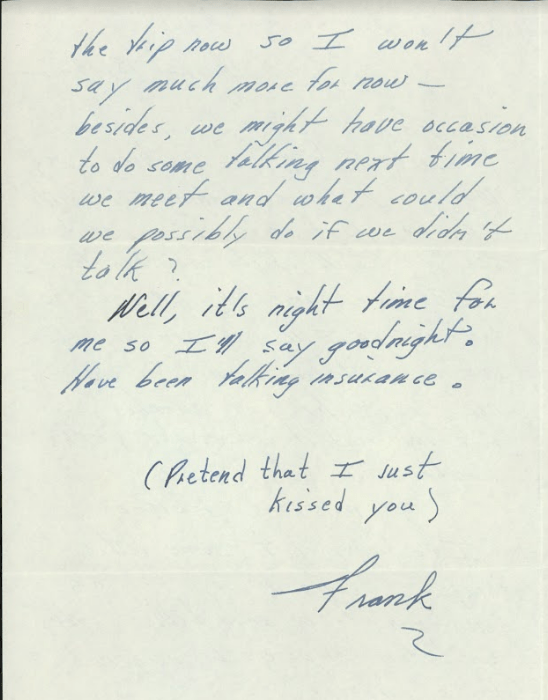 the trip now so I won't
say much more for now —
besides, we might have occasion
to do some talking next time
we meet and what could
we possibly do if we didn't
talk?
Well, it's night time for
me so I'll say goodnight.
Have been talking insurance.
(Pretend that I just
kissed you)
Frank